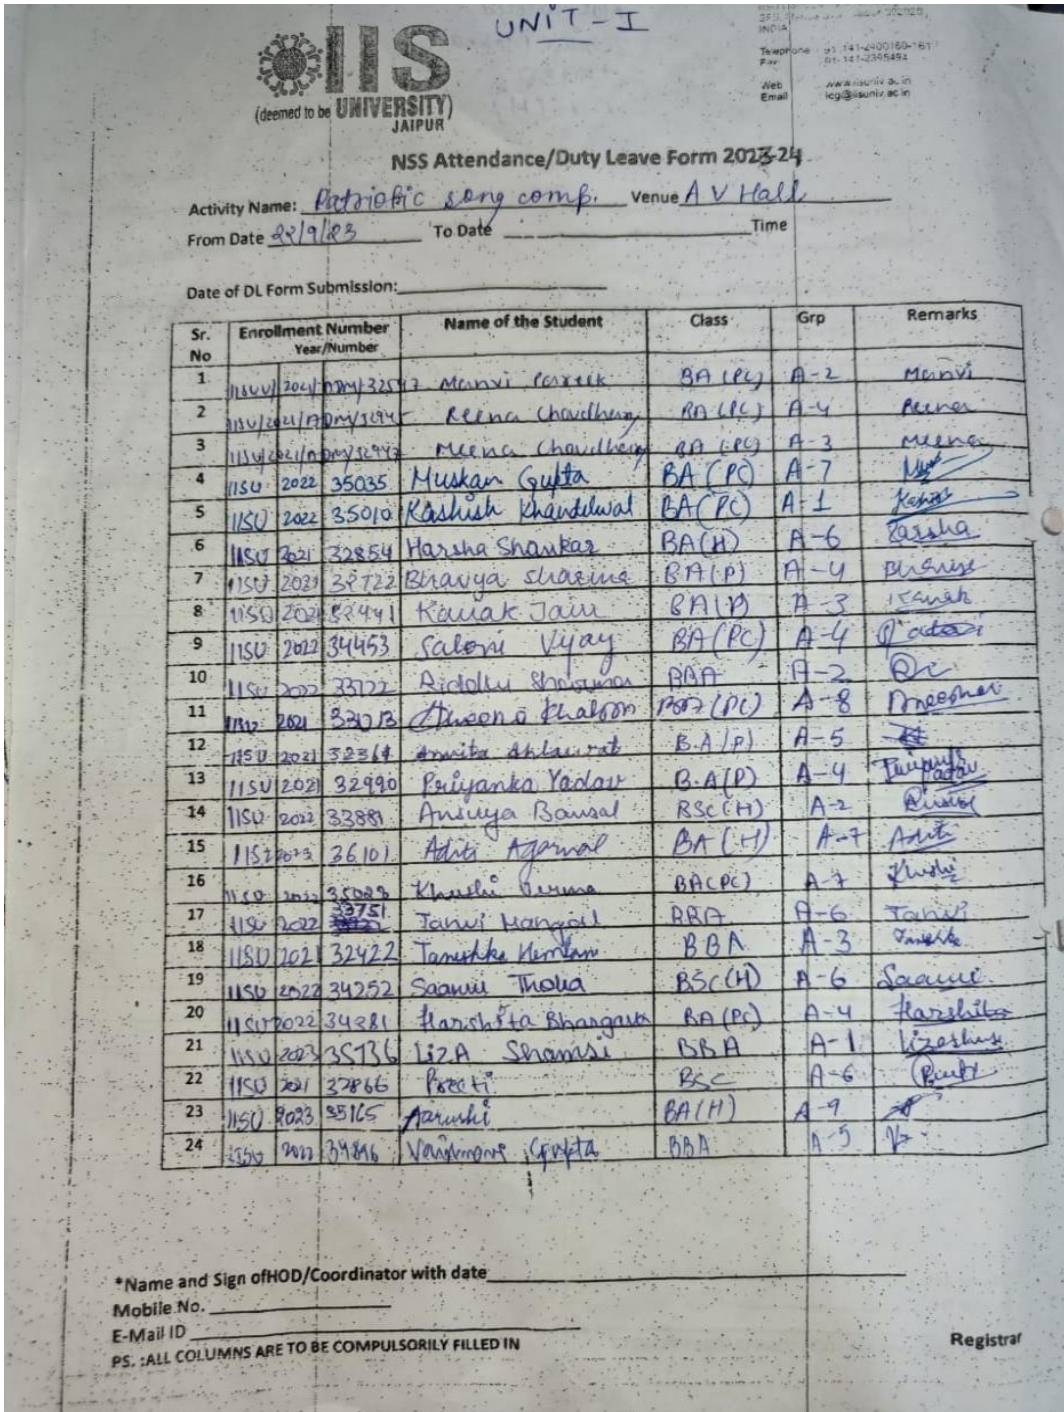 UNIT-I
INDIA
Telephone 91-141-2400160-161
Fax 01-141-2395494
Web www.iisuniv.ac.in
Email icg@iisuniv.ac.in
IIS
(deemed to be UNIVERSITY)
JAIPUR
NSS Attendance/Duty Leave Form 2023-24
Activity Name: Patriotic song comp. Venue A V Hall
From Date 22/9/23 To Date Time
Date of DL Form Submission:
Sr. No Enrollment Number Year/Number Name of the Student Class Grp Remarks
1 Manvi Pareek BA (PC) A-2 Manvi
2 Reena Choudhary BA (PC) A-4 Reena
3 Meena Choudhary BA (PC) A-3 Meena
4 IISU 2022 35035 Muskan Gupta BA (PC) A-7
5 IISU 2022 35010 Kashish Khandelwal BA (PC) A-1
6 IISU 2021 32854 Harsha Shankar BA(H) A-6 Harsha
7 IISU 2021 32722 Bhavya Sharma B.A(P) A-4
8 IISU 2021 32441 Kanak Jain BA(P) A-3 Kanak
9 IISU 2022 34453 Saloni Vijay BA(PC) A-4
10 IISU 2022 33722 Riddhi Sharma BBA A-2
11 IISU 2021 Khatoon A-8
12 IISU 2021 32364 Amrita Ahlawat B.A(P) A-5
13 IISU 2021 32990 Priyanka Yadav B.A(P) A-4 Priyanka Yadav
14 IISU 2022 33881 Bansal BSc(H) A-2
15 2023 36101 Aditi Agarwal BA (H) A-7 Aditi
16 IISU 2022 35023 Khushi Verma BA(PC) A-7 Khushi
17 IISU 2022 33751 Tanvi Mangal BBA A-6 Tanvi
18 IISU 2021 32422 Tanishka BBA A-3
19 IISU 2022 34252 Saanvi BSc(H) A-6 Saanvi
20 IISU 2022 34281 Harshita Bhargava BA(PC) A-4 Harshita
21 IISU 2023 35736 LizA Shamsi BBA A-1
22 IISU 2021 32866 Preeti BSC A-6 Preeti
23 IISU 2023 35165 Aarushi BA(H) A-9
24 IISU 2022 34896 Gupta BBA A-5
*Name and Sign ofHOD/Coordinator with date
Mobile No.
E-Mail ID
PS. :ALL COLUMNS ARE TO BE COMPULSORILY FILLED IN
Registrar